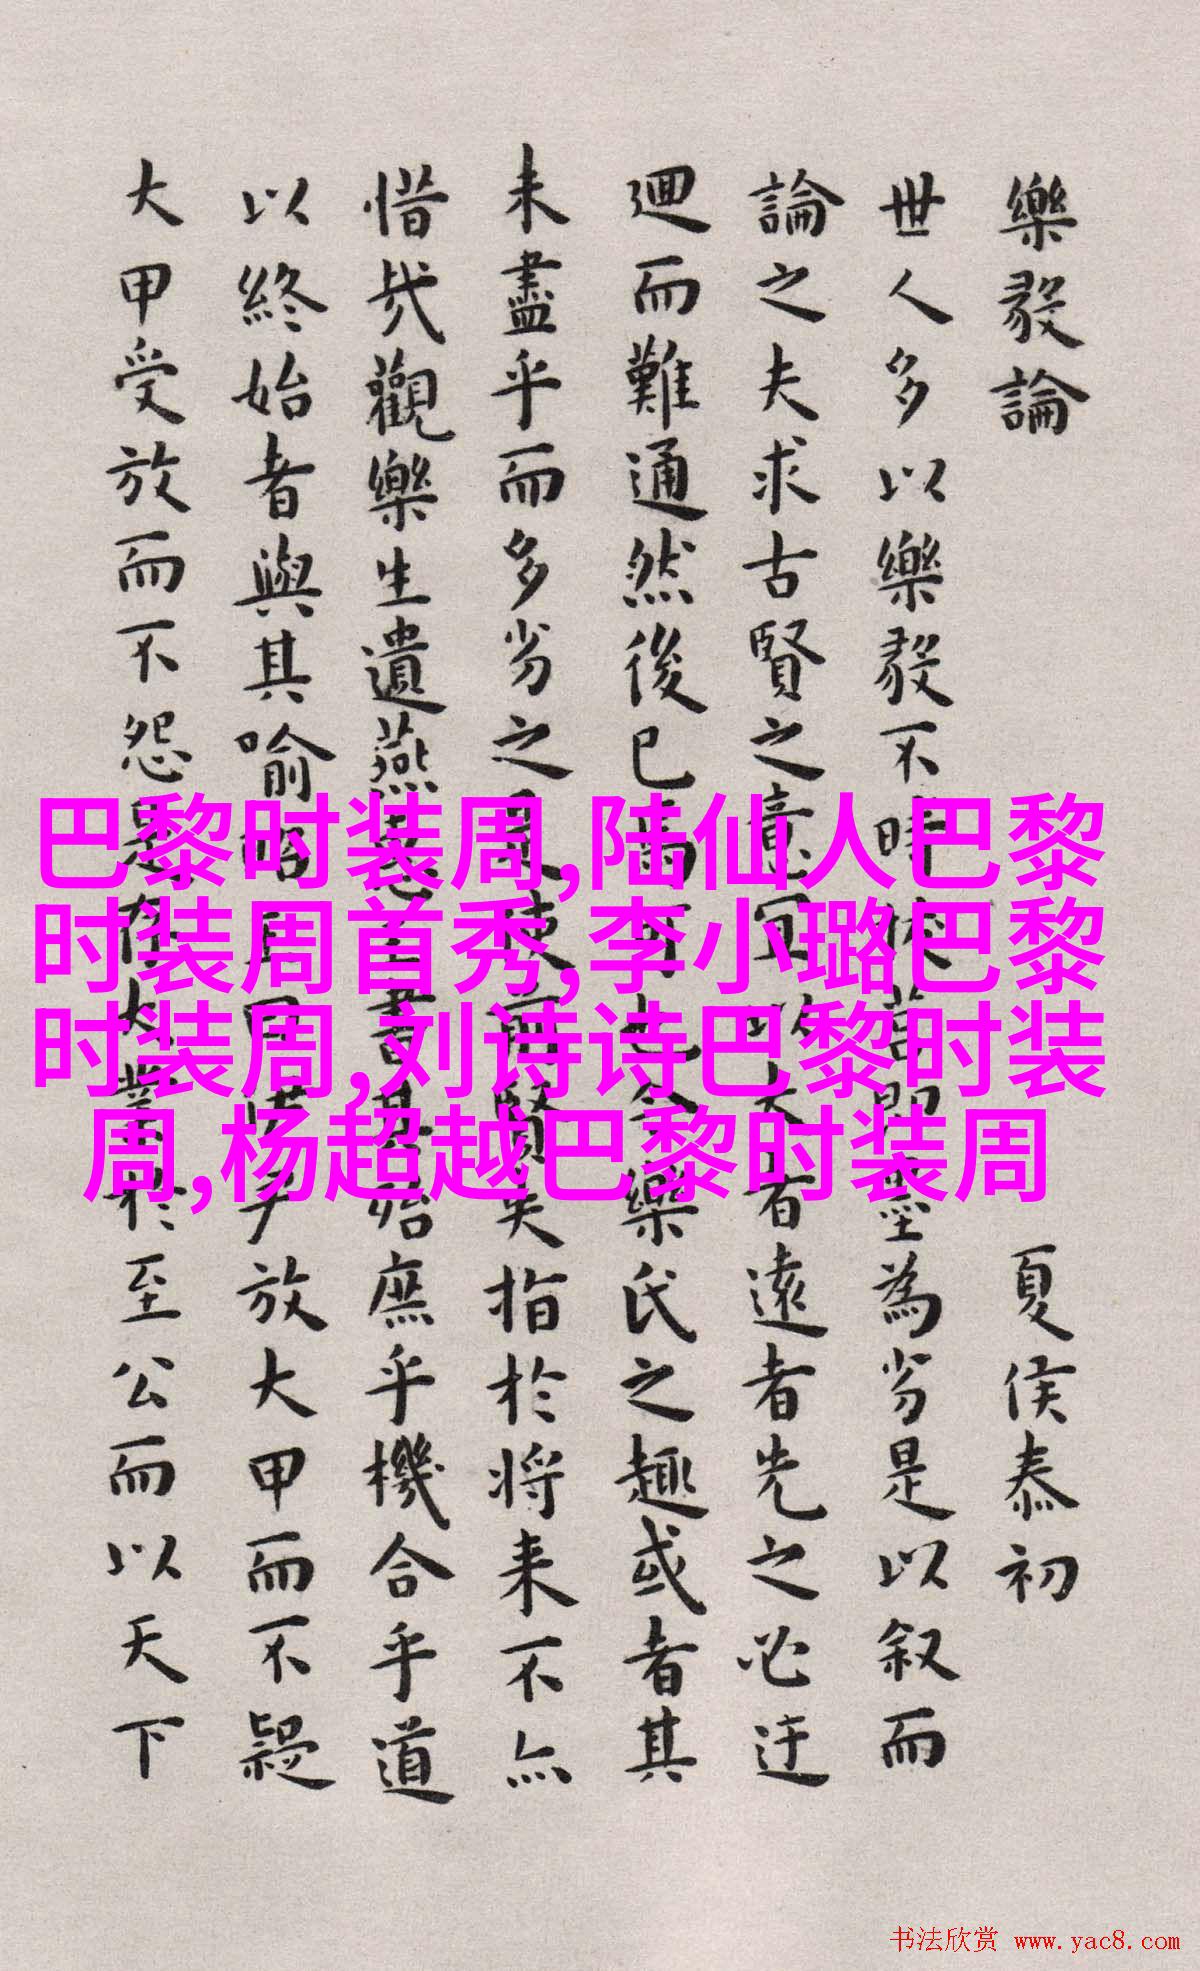 樂毅論 夏侯泰初
世人多以樂毅不時拔莒即墨為劣是以叙而
論之夫求古賢之意宜以大者遠者先之必迂
迴而難通然後已焉可也今樂氏之趣或者其
未盡乎而多劣之是使前賢失指於将来不亦
惜哉觀樂生遺燕惠王書其殆庶乎機合乎道
以終始者與其喻昭王曰伊尹放大甲而不疑
大甲受放而不怨是存大業於至公而以天下
巴黎时装周,陆仙人巴黎
时装周首秀,李小璐巴黎
时装周,刘诗诗巴黎时装
周,杨超越巴黎时装周
书法欣赏 www.yac8.com